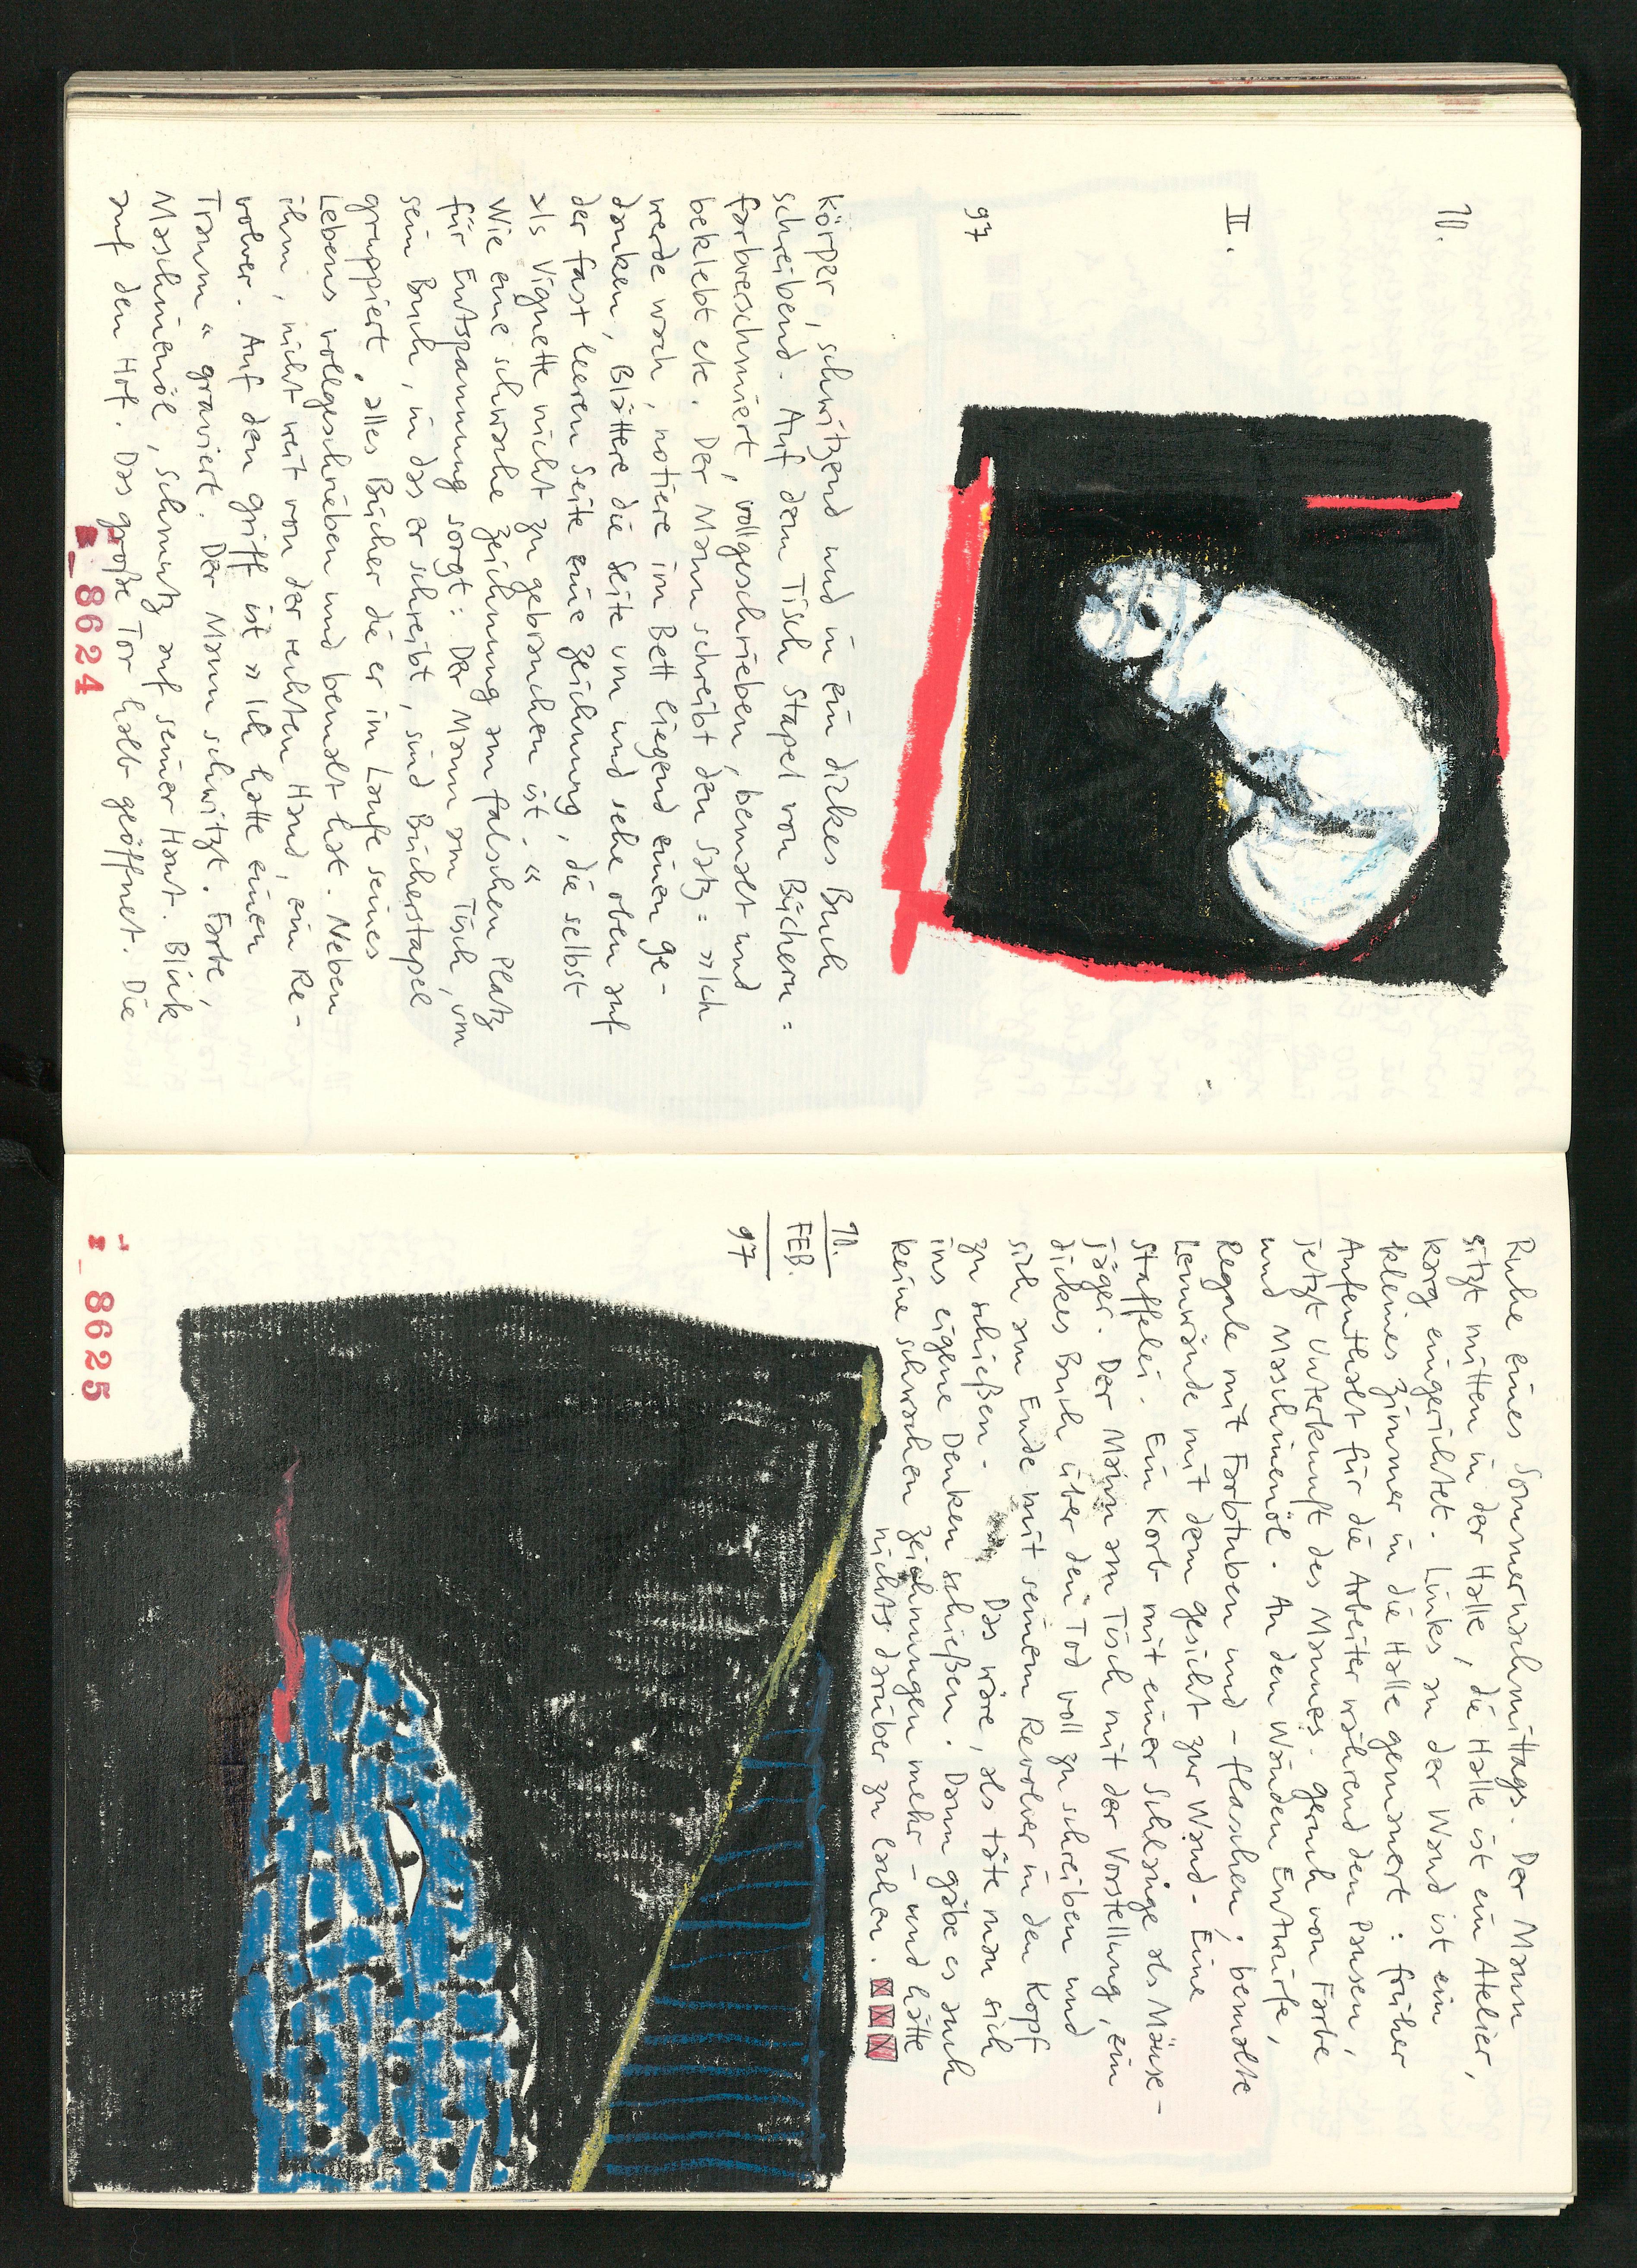 10.
II.
97
Körper, schwitzend und in ein dickes Buch
schreibend. Auf dem Tisch Stapel von Büchern:
farbverschmiert, vollgeschrieben, bemalt und
beklebt etc. Der Mann schreibt den Satz: »Ich
werde wach, notiere im Bett liegend einen Ge-
danken, Blättere die Seite um und sehe oben auf
der fast leeren Seite eine Zeichnung, die selbst
als Vignette nicht zu gebrauchen ist.«
Wie eine schwache Zeichnung am falschen Platz
für Entspannung sorgt: Der Mann am Tisch, um
sein Buch, in das er schreibt, sind Bücherstapel
gruppiert, alles Bücher die er im Laufe seines
Lebens vollgeschrieben und bemalt hat. Neben
ihm, nicht weit von der rechten Hand, ein Re-
volver. Auf den Griff ist »Ich hatte einen
Traum« graviert. Der Mann schwitzt. Farbe,
Maschinenöl, Schmutz auf seiner Haut. Blick
auf den Hof. Das große Tor halb geöffnet. Die
8624
Ruhe eines Sommernachmittags. Der Mann
sitzt mitten in der Halle, die Halle ist ein Atelier,
karg eingerichtet. Links an der Wand ist ein
kleines Zimmer in die Halle gemauert: früher
Aufenthalt für die Arbeiter während den Pausen,
jetzt Unterkunft des Mannes. Geruch von Farbe
und Maschinenöl. An den Wänden Entwürfe,
Regale mit Farbtuben und -flaschen; bemalte
Leinwände mit dem Gesicht zur Wand. Eine
Staffelei. Ein Korb mit einer Schlange als Mäuse-
jäger. Der Mann am Tisch mit der Vorstellung, ein
dickes Buch über den Tod voll zu schreiben und
sich am Ende mit seinem Revolver in den Kopf
zu schießen. Das wäre, als täte man sich
ins eigene Denken schießen. Dann gäbe es auch
keine schwachen Zeichnungen mehr – und hätte
nichts darüber zu lachen.
10.
FEB.
97
8625